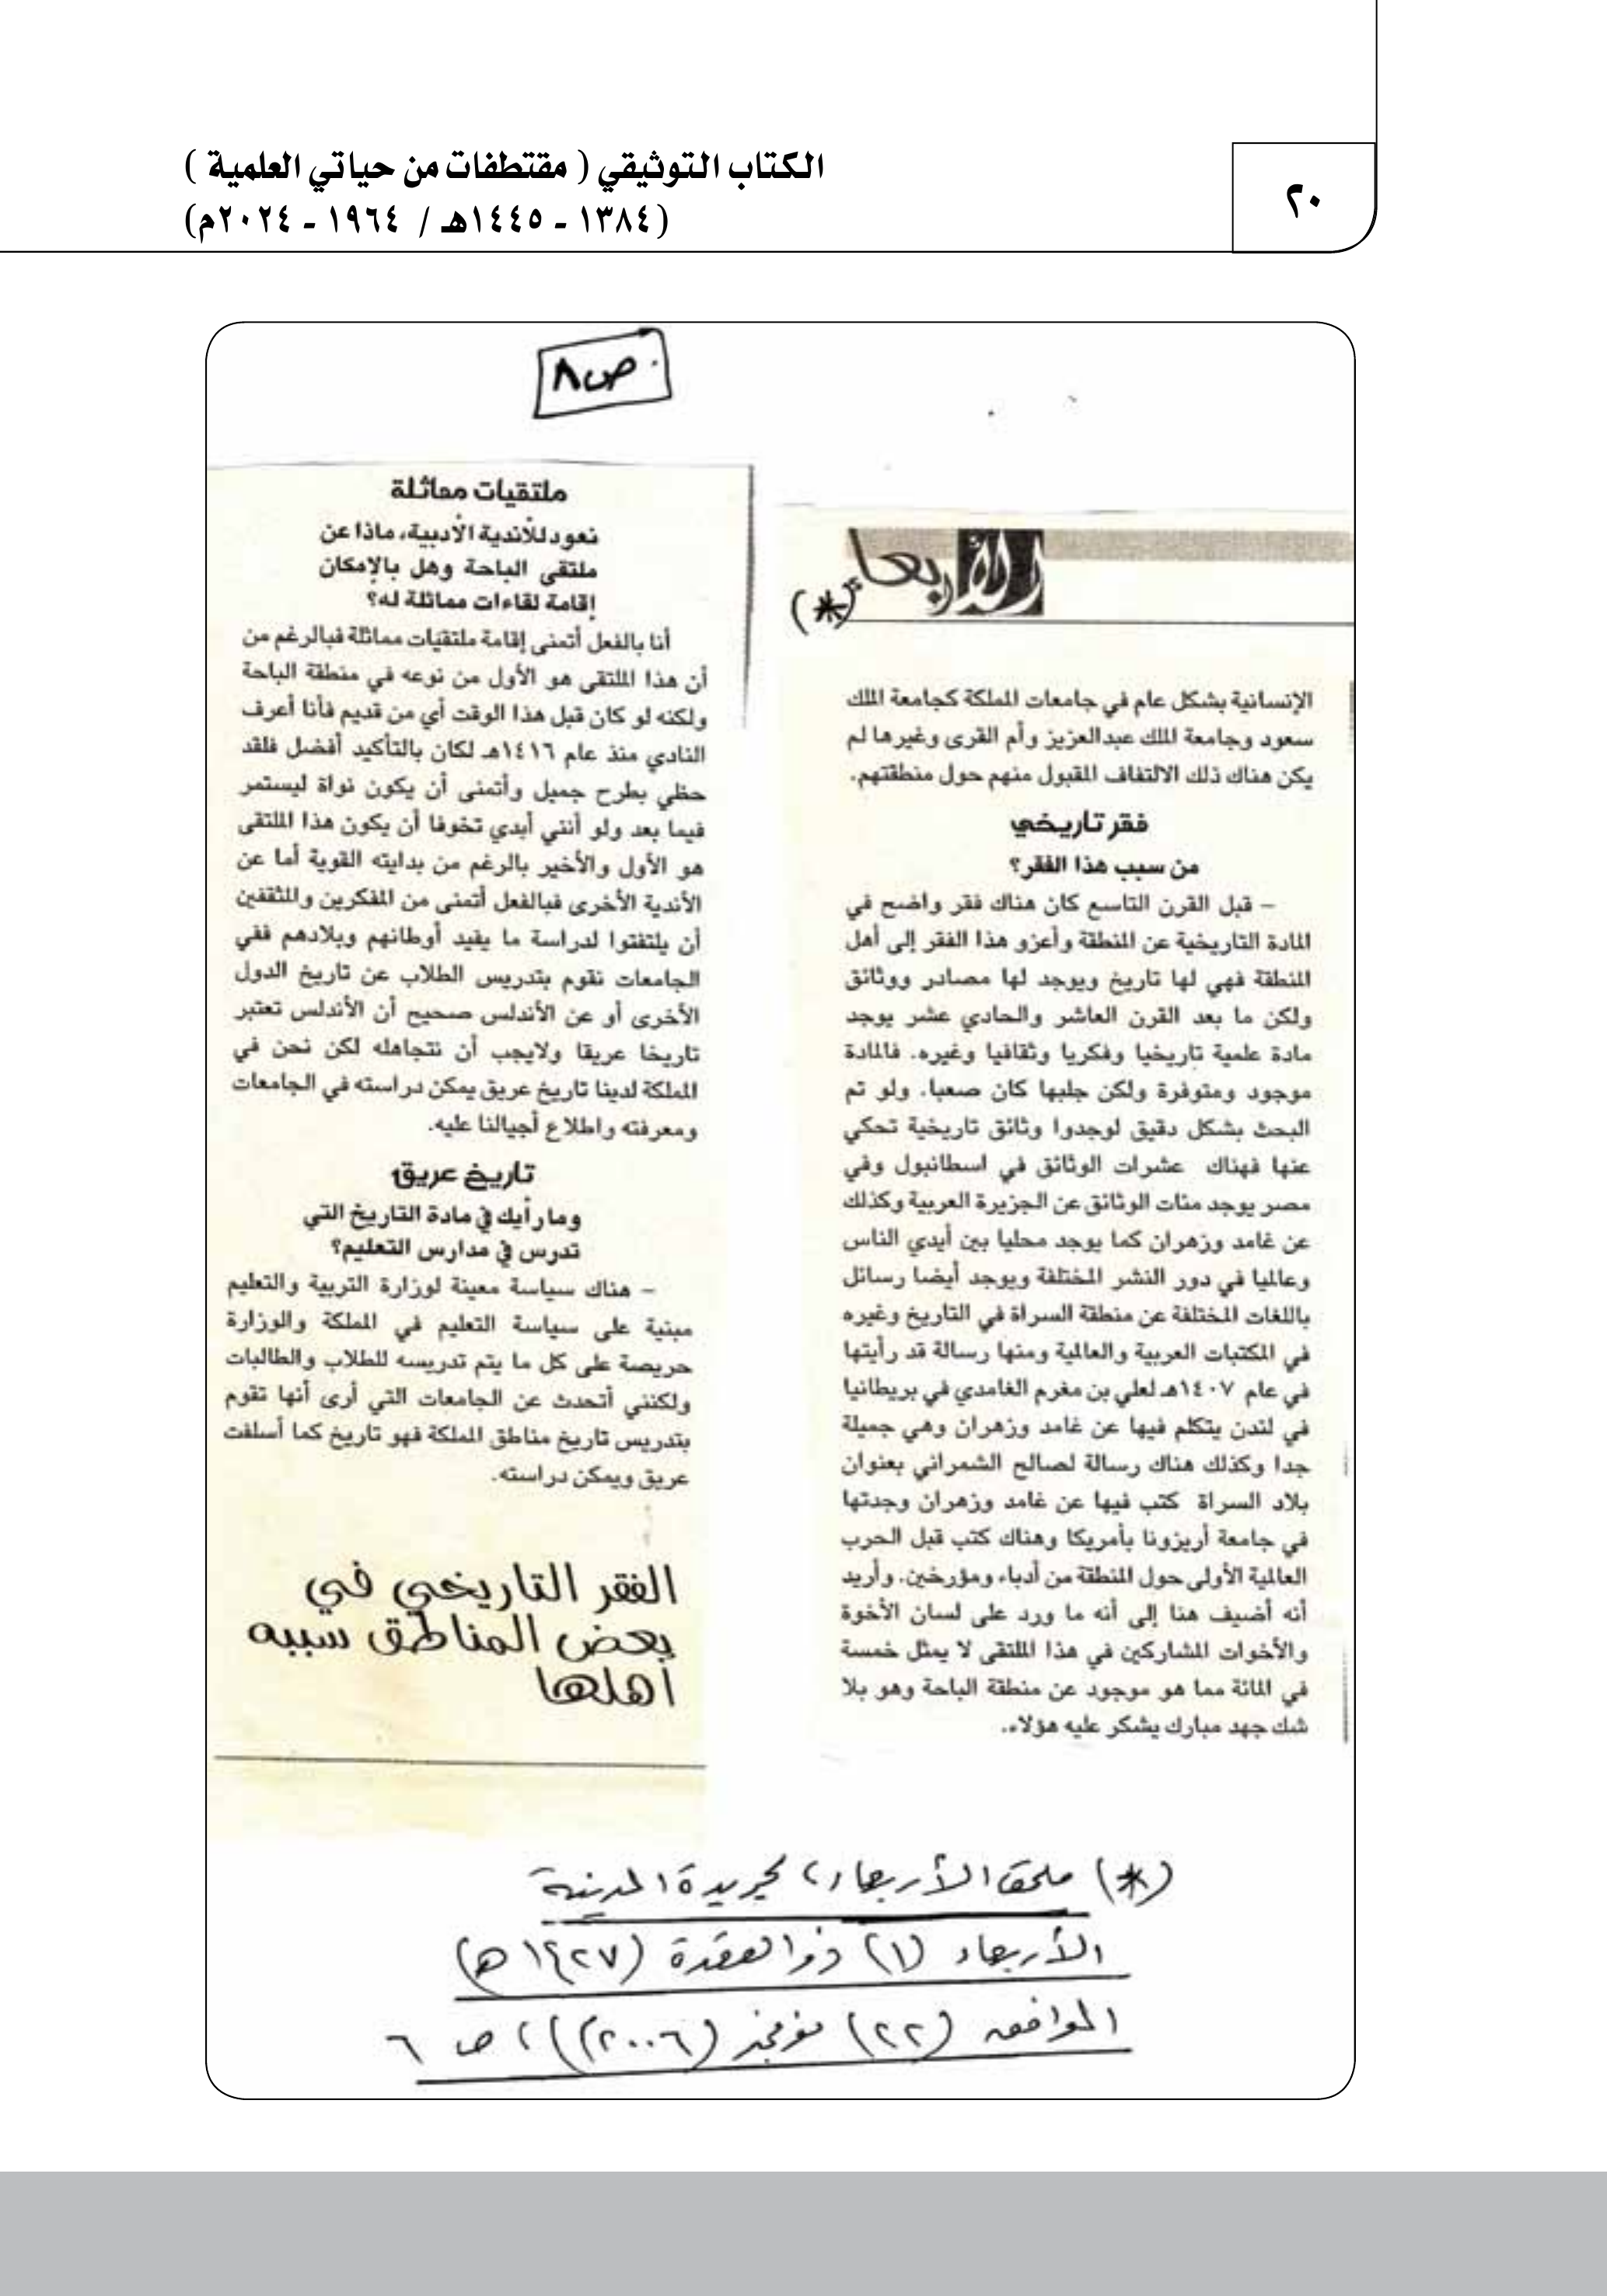 الكتاب التوثيقي ( مقتطفات من حياتي العلمية )
(١٣٨٤ - ١٤٤٥هـ / ١٩٦٤ - ٢٠٢٤م)
٢٠
ص٨
الأربعاء
(*)
الإنسانية بشكل عام في جامعات المملكة كجامعة الملك
سعود وجامعة الملك عبدالعزيز وأم القرى وغيرها لم
يكن هناك ذلك الالتفاف المقبول منهم حول منطقتهم.
فقر تاريخي
من سبب هذا الفقر؟
– قبل القرن التاسع كان هناك فقر واضح في
المادة التاريخية عن المنطقة وأعزو هذا الفقر إلى أهل
المنطقة فهي لها تاريخ ويوجد لها مصادر ووثائق
ولكن ما بعد القرن العاشر والحادي عشر يوجد
مادة علمية تاريخيا وفكريا وثقافيا وغيره. فالمادة
موجود ومتوفرة ولكن جلبها كان صعبا. ولو تم
البحث بشكل دقيق لوجدوا وثائق تاريخية تحكي
عنها فهناك عشرات الوثائق في اسطانبول وفي
مصر يوجد مئات الوثائق عن الجزيرة العربية وكذلك
عن غامد وزهران كما يوجد محليا بين أيدي الناس
وعالميا في دور النشر المختلفة ويوجد أيضا رسائل
باللغات المختلفة عن منطقة السراة في التاريخ وغيره
في المكتبات العربية والعالمية ومنها رسالة قد رأيتها
في عام ١٤٠٧هـ لعلي بن مغرم الغامدي في بريطانيا
في لندن يتكلم فيها عن غامد وزهران وهي جميلة
جدا وكذلك هناك رسالة لصالح الشمراني بعنوان
بلاد السراة كتب فيها عن غامد وزهران وجدتها
في جامعة أريزونا بأمريكا وهناك كتب قبل الحرب
العالمية الأولى حول المنطقة من أدباء ومؤرخين. وأريد
أنه أضيف هنا إلى أنه ما ورد على لسان الأخوة
والأخوات المشاركين في هذا الملتقى لا يمثل خمسة
في المائة مما هو موجود عن منطقة الباحة وهو بلا
شك جهد مبارك يشكر عليه هؤلاء.
ملتقيات مماثلة
نعود للأندية الأدبية، ماذا عن
ملتقى الباحة وهل بالإمكان
إقامة لقاءات مماثلة له؟
أنا بالفعل أتمنى إقامة ملتقيات مماثلة فبالرغم من
أن هذا الملتقى هو الأول من نوعه في منطقة الباحة
ولكنه لو كان قبل هذا الوقت أي من قديم فأنا أعرف
النادي منذ عام ١٤١٦هـ لكان بالتأكيد أفضل فلقد
حظي بطرح جميل وأتمنى أن يكون نواة ليستمر
فيما بعد ولو أنني أبدي تخوفا أن يكون هذا الملتقى
هو الأول والأخير بالرغم من بدايته القوية أما عن
الأندية الأخرى فبالفعل أتمنى من المفكرين والمثقفين
أن يلتفتوا لدراسة ما يفيد أوطانهم وبلادهم ففي
الجامعات نقوم بتدريس الطلاب عن تاريخ الدول
الأخرى أو عن الأندلس صحيح أن الأندلس تعتبر
تاريخا عريقا ولايجب أن نتجاهله لكن نحن في
المملكة لدينا تاريخ عريق يمكن دراسته في الجامعات
ومعرفته واطلاع أجيالنا عليه.
تاريخ عريق
وما رأيك في مادة التاريخ التي
تدرس في مدارس التعليم؟
– هناك سياسة معينة لوزارة التربية والتعليم
مبنية على سياسة التعليم في المملكة والوزارة
حريصة على كل ما يتم تدريسه للطلاب والطالبات
ولكنني أتحدث عن الجامعات التي أرى أنها تقوم
بتدريس تاريخ مناطق المملكة فهو تاريخ كما أسلفت
عريق ويمكن دراسته.
الفقر التاريخي في
بعض المناطق سببه
أهلها
(*) ملحق الأربعاء، لجريدة المدينة
الأربعاء (١) ذو القعدة (١٤٢٧هـ)
الموافق (٢٢) نوفمبر (٢٠٠٦م)، ص ٦